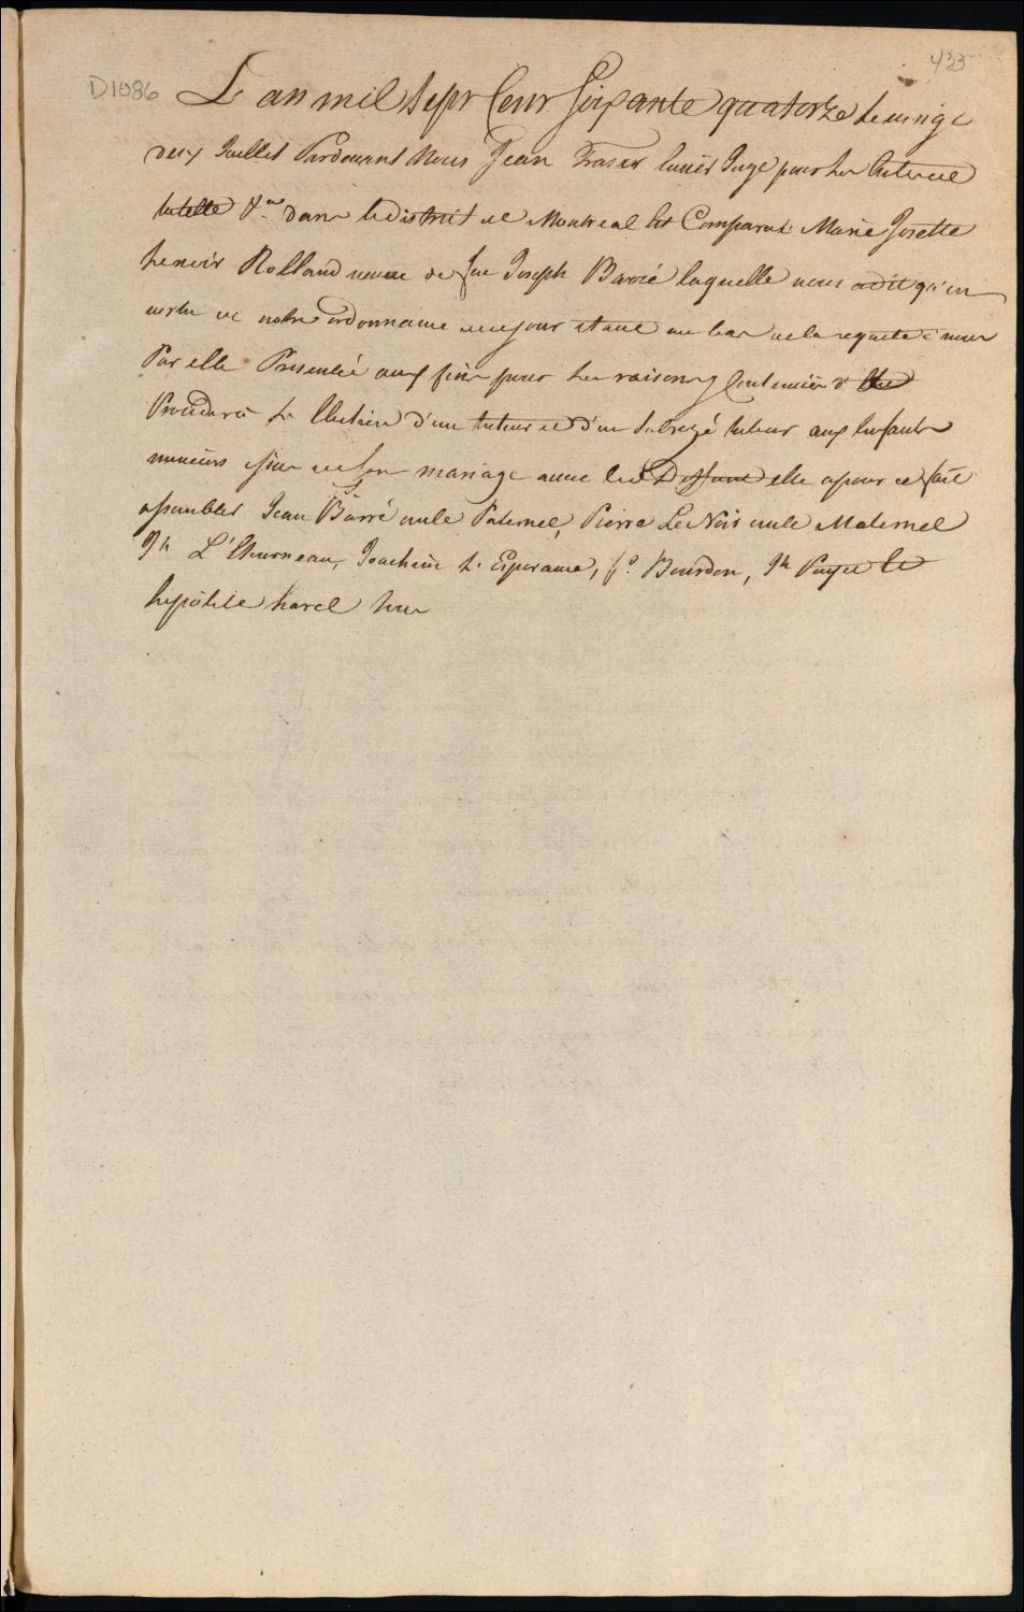 433
D1086
L'an mil sept Cent Soixante quatorze le vingt
deux Juillet Pardevant Nous Jean Fraser Ecuier Juge pour les
tutelle &ca dans le district de Montreal Est Comparue Marie Josette
Lenoir Rolland veuve de feu Joseph Barré laquelle nous a dit qu'en
vertu de notre ordonnance de ce jour étant au bas de la requete à nous
Par elle Presentée aux fins pour les raisons y Contenües d
Proceder à L'Election d'un tuteur et d'un Subrogé tuteur aux Enfants
mineurs issus de son mariage avec led Deffunt elle a pour ce fait
assembler Jean Barré oncle Paternel, Pierre LeNoir oncle Maternel
Jh L'Etourneau, Joachim L'Esperance, fs Bourdon, Jh
hypolite harel